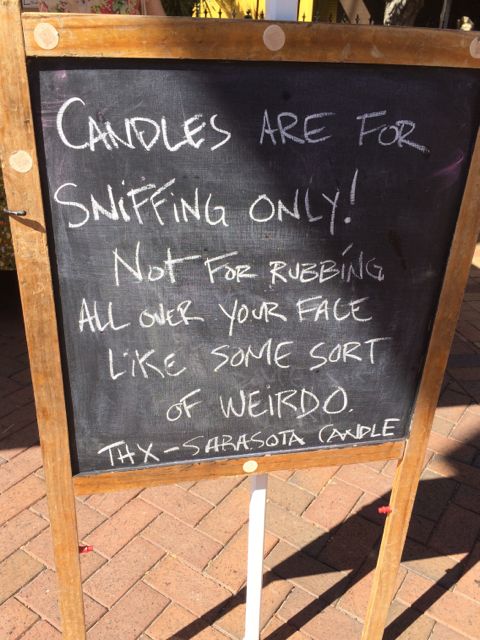 CANDLES ARE FOR
SNiFFiNG ONLY!
NOT FOR RUBBING
ALL OVER YOUR FACE
LiKE SOME SORT
OF WEiRDO.
THX - SARASOTA CANDLE